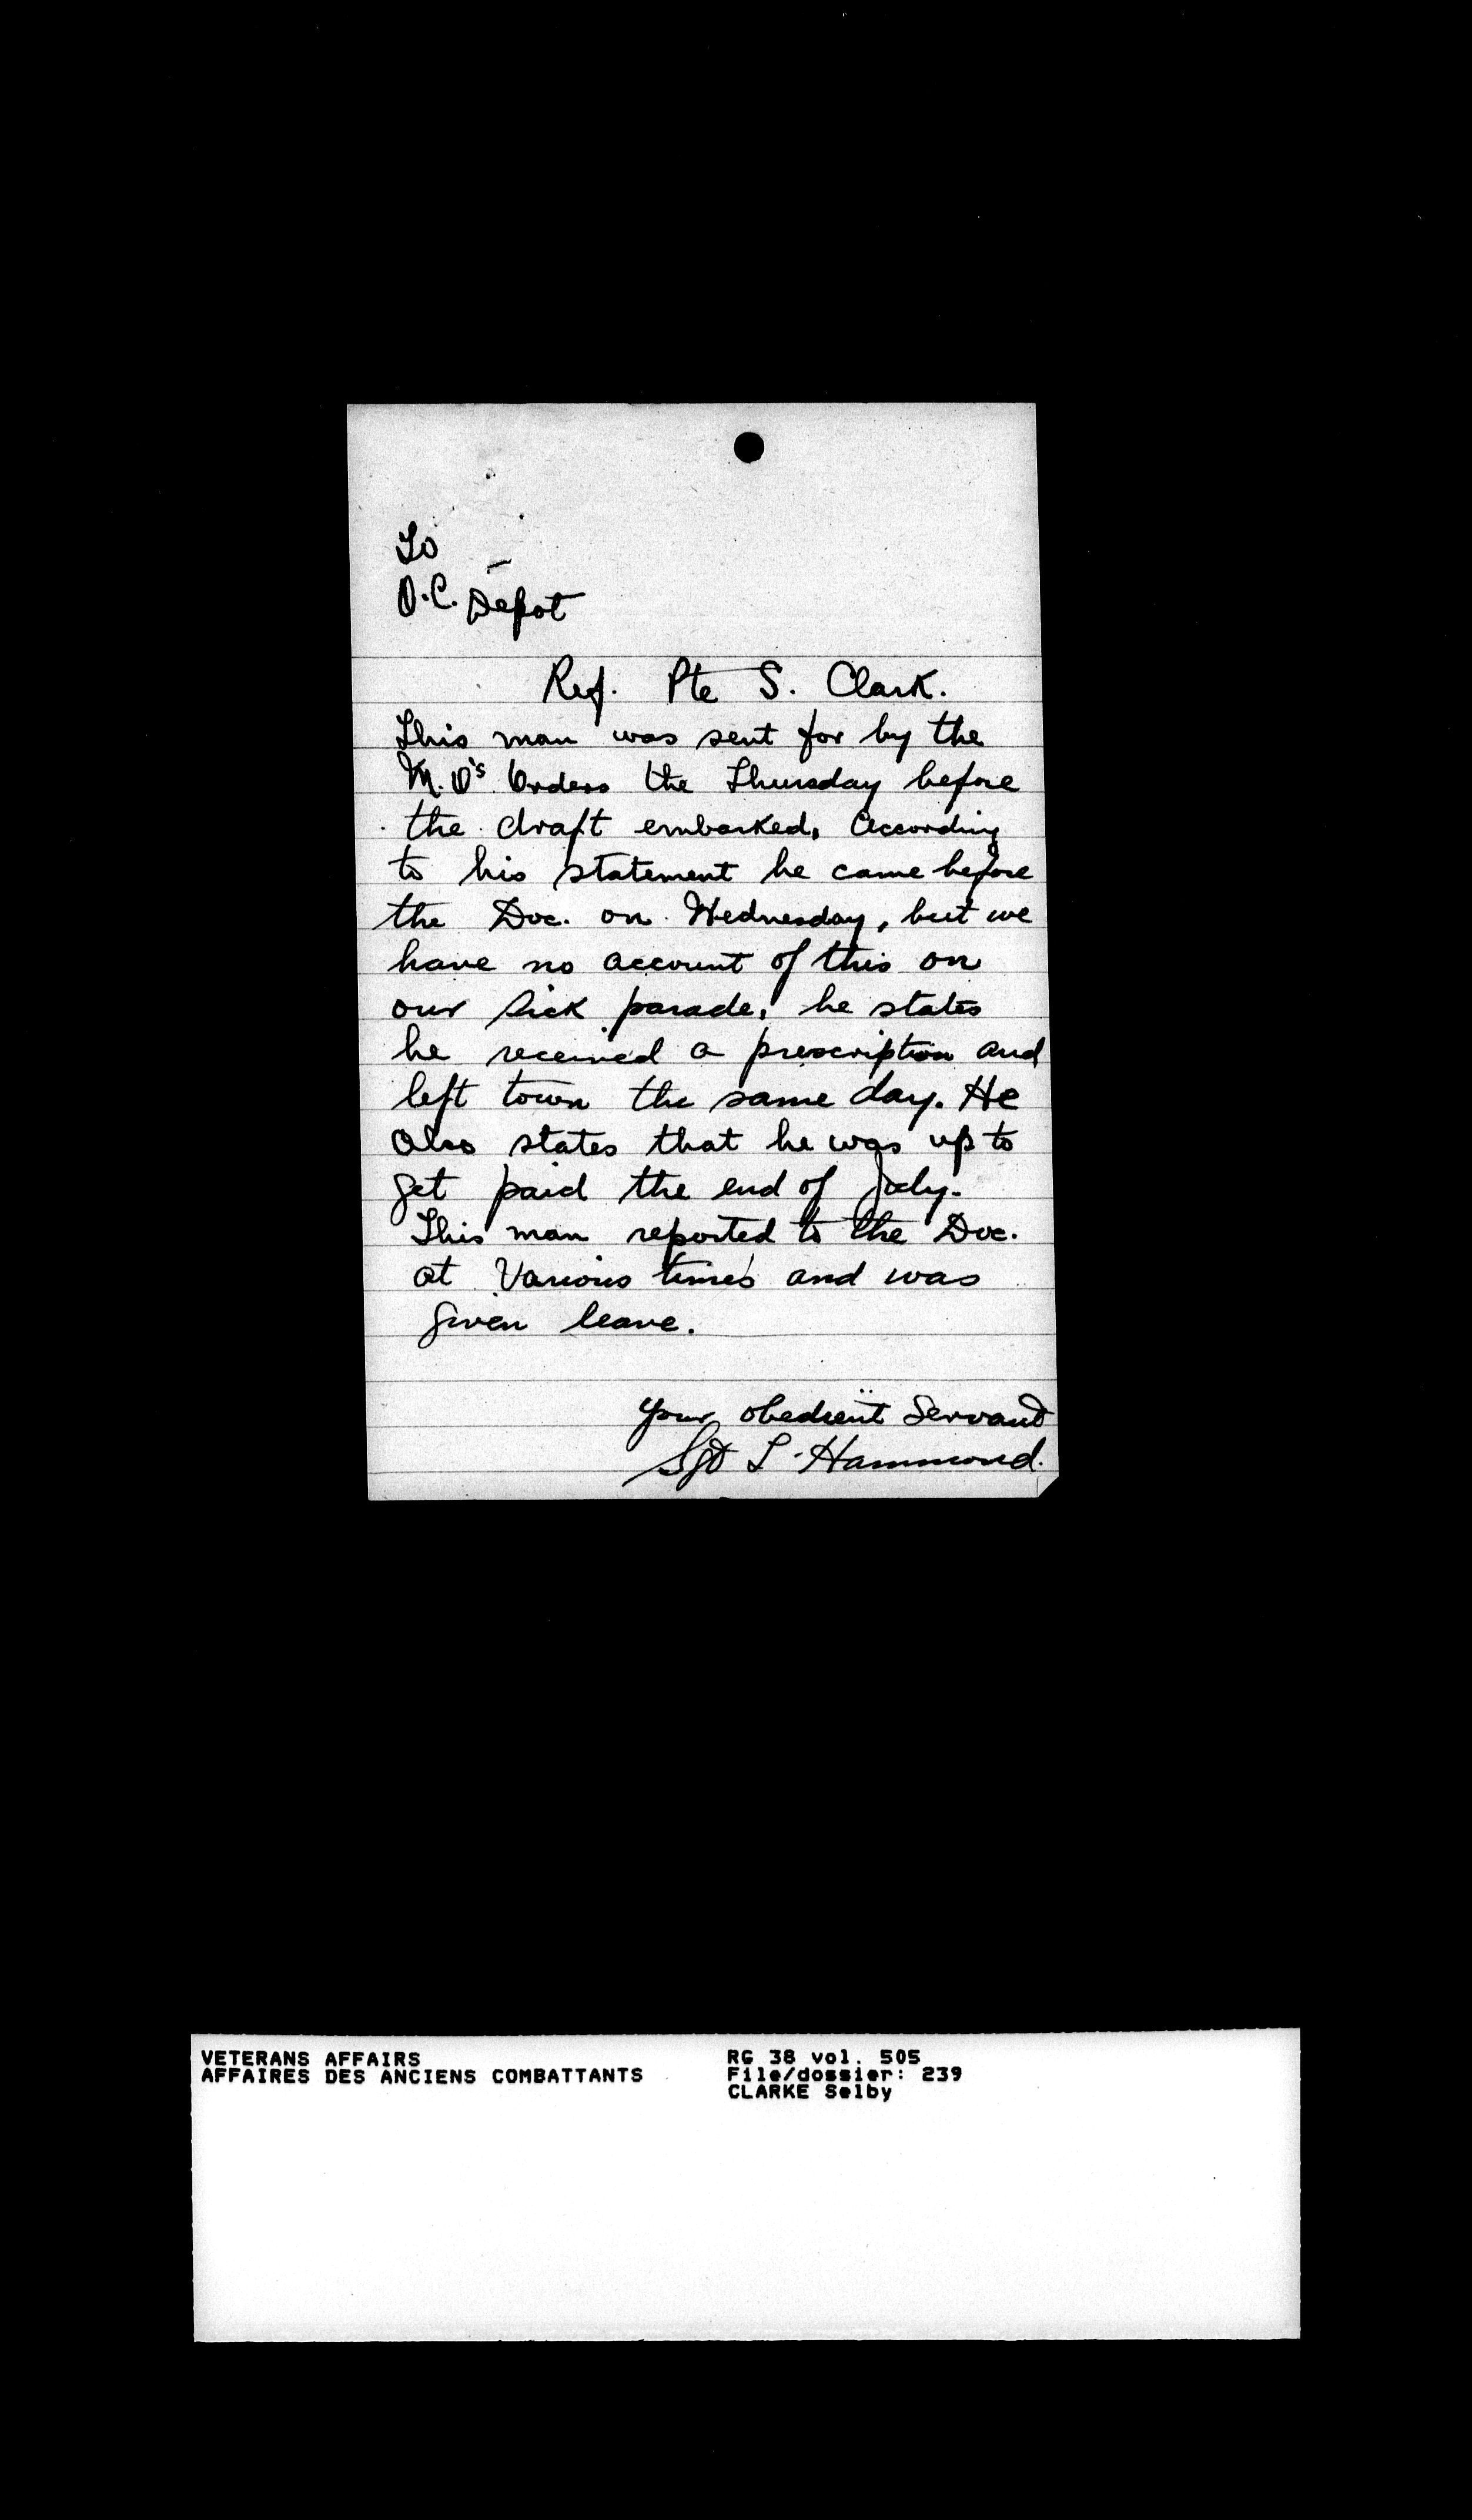 To
O.C. Depot
Ref. Pte S. Clark.
This man was sent for by the
M.O's Orders the Thursday before
the draft embarked, according
to his statement he came before
the Doc. on Wednesday, but we
have no account of this on
our sick parade, he states
he received a prescription and
left town the same day. He
also states that he was up to
get paid the end of July.
This man reported to the Doc.
at Various times and was
given leave.
Your obedient Servant
Sgt L. Hammond.
VETERANS AFFAIRS
AFFAIRES DES ANCIENS COMBATTANTS
RG 38 vol. 505
File/dossier: 239
CLARKE Selby